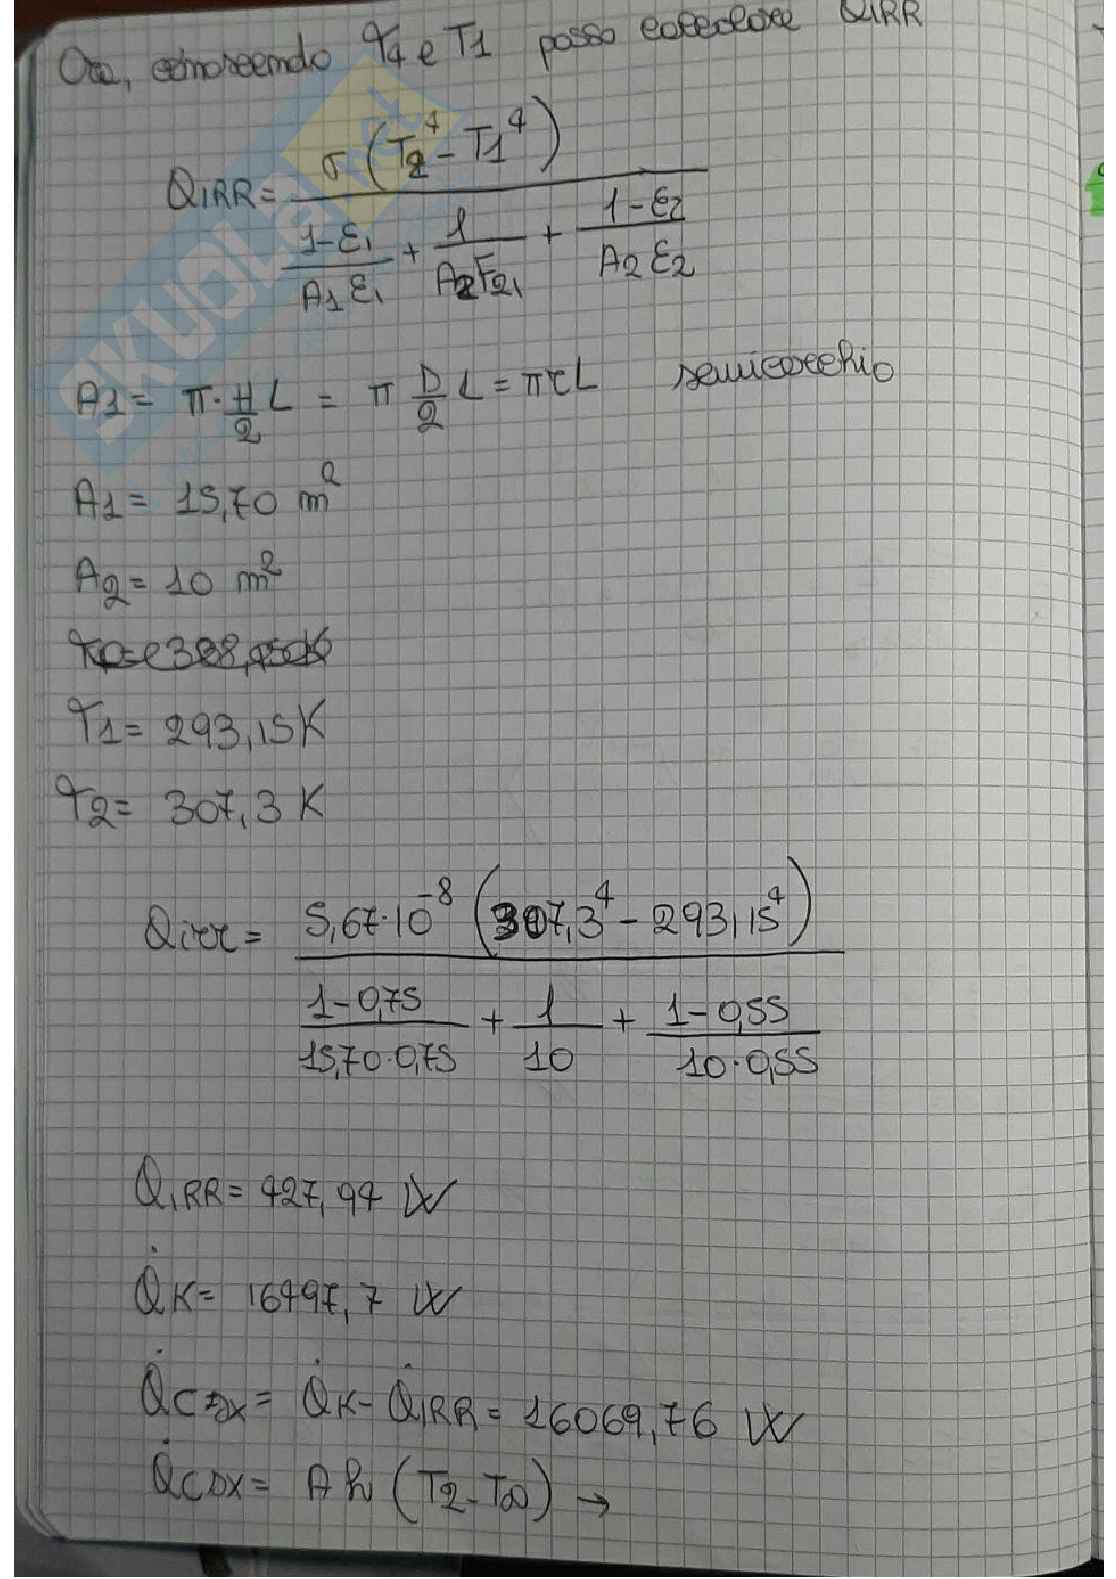 Ora, conoscendo T4 e T1 posso calcolare QIRR
QIRR = σ (T2⁴ - T1⁴) / ( (1-ε1)/(A1 ε1) + 1/(A2 F21) + (1-ε2)/(A2 ε2) )
A1 = π · H/2 L = π D/2 L = π r L semicerchio
A1 = 15,70 m²
A2 = 10 m²
T1 = 293,15 K
T2 = 307,3 K
Qirr = 5,67·10⁻⁸ (307,3⁴ - 293,15⁴) / ( (1-0,75)/(15,70·0,75) + 1/10 + (1-0,55)/(10·0,55) )
QIRR = 427,94 W
Q̇K = 16497,7 W
Q̇CDX = Q̇K - Q̇IRR = 16069,76 W
Q̇CDX = A h (T2 - T∞) →
SKUOLA.net